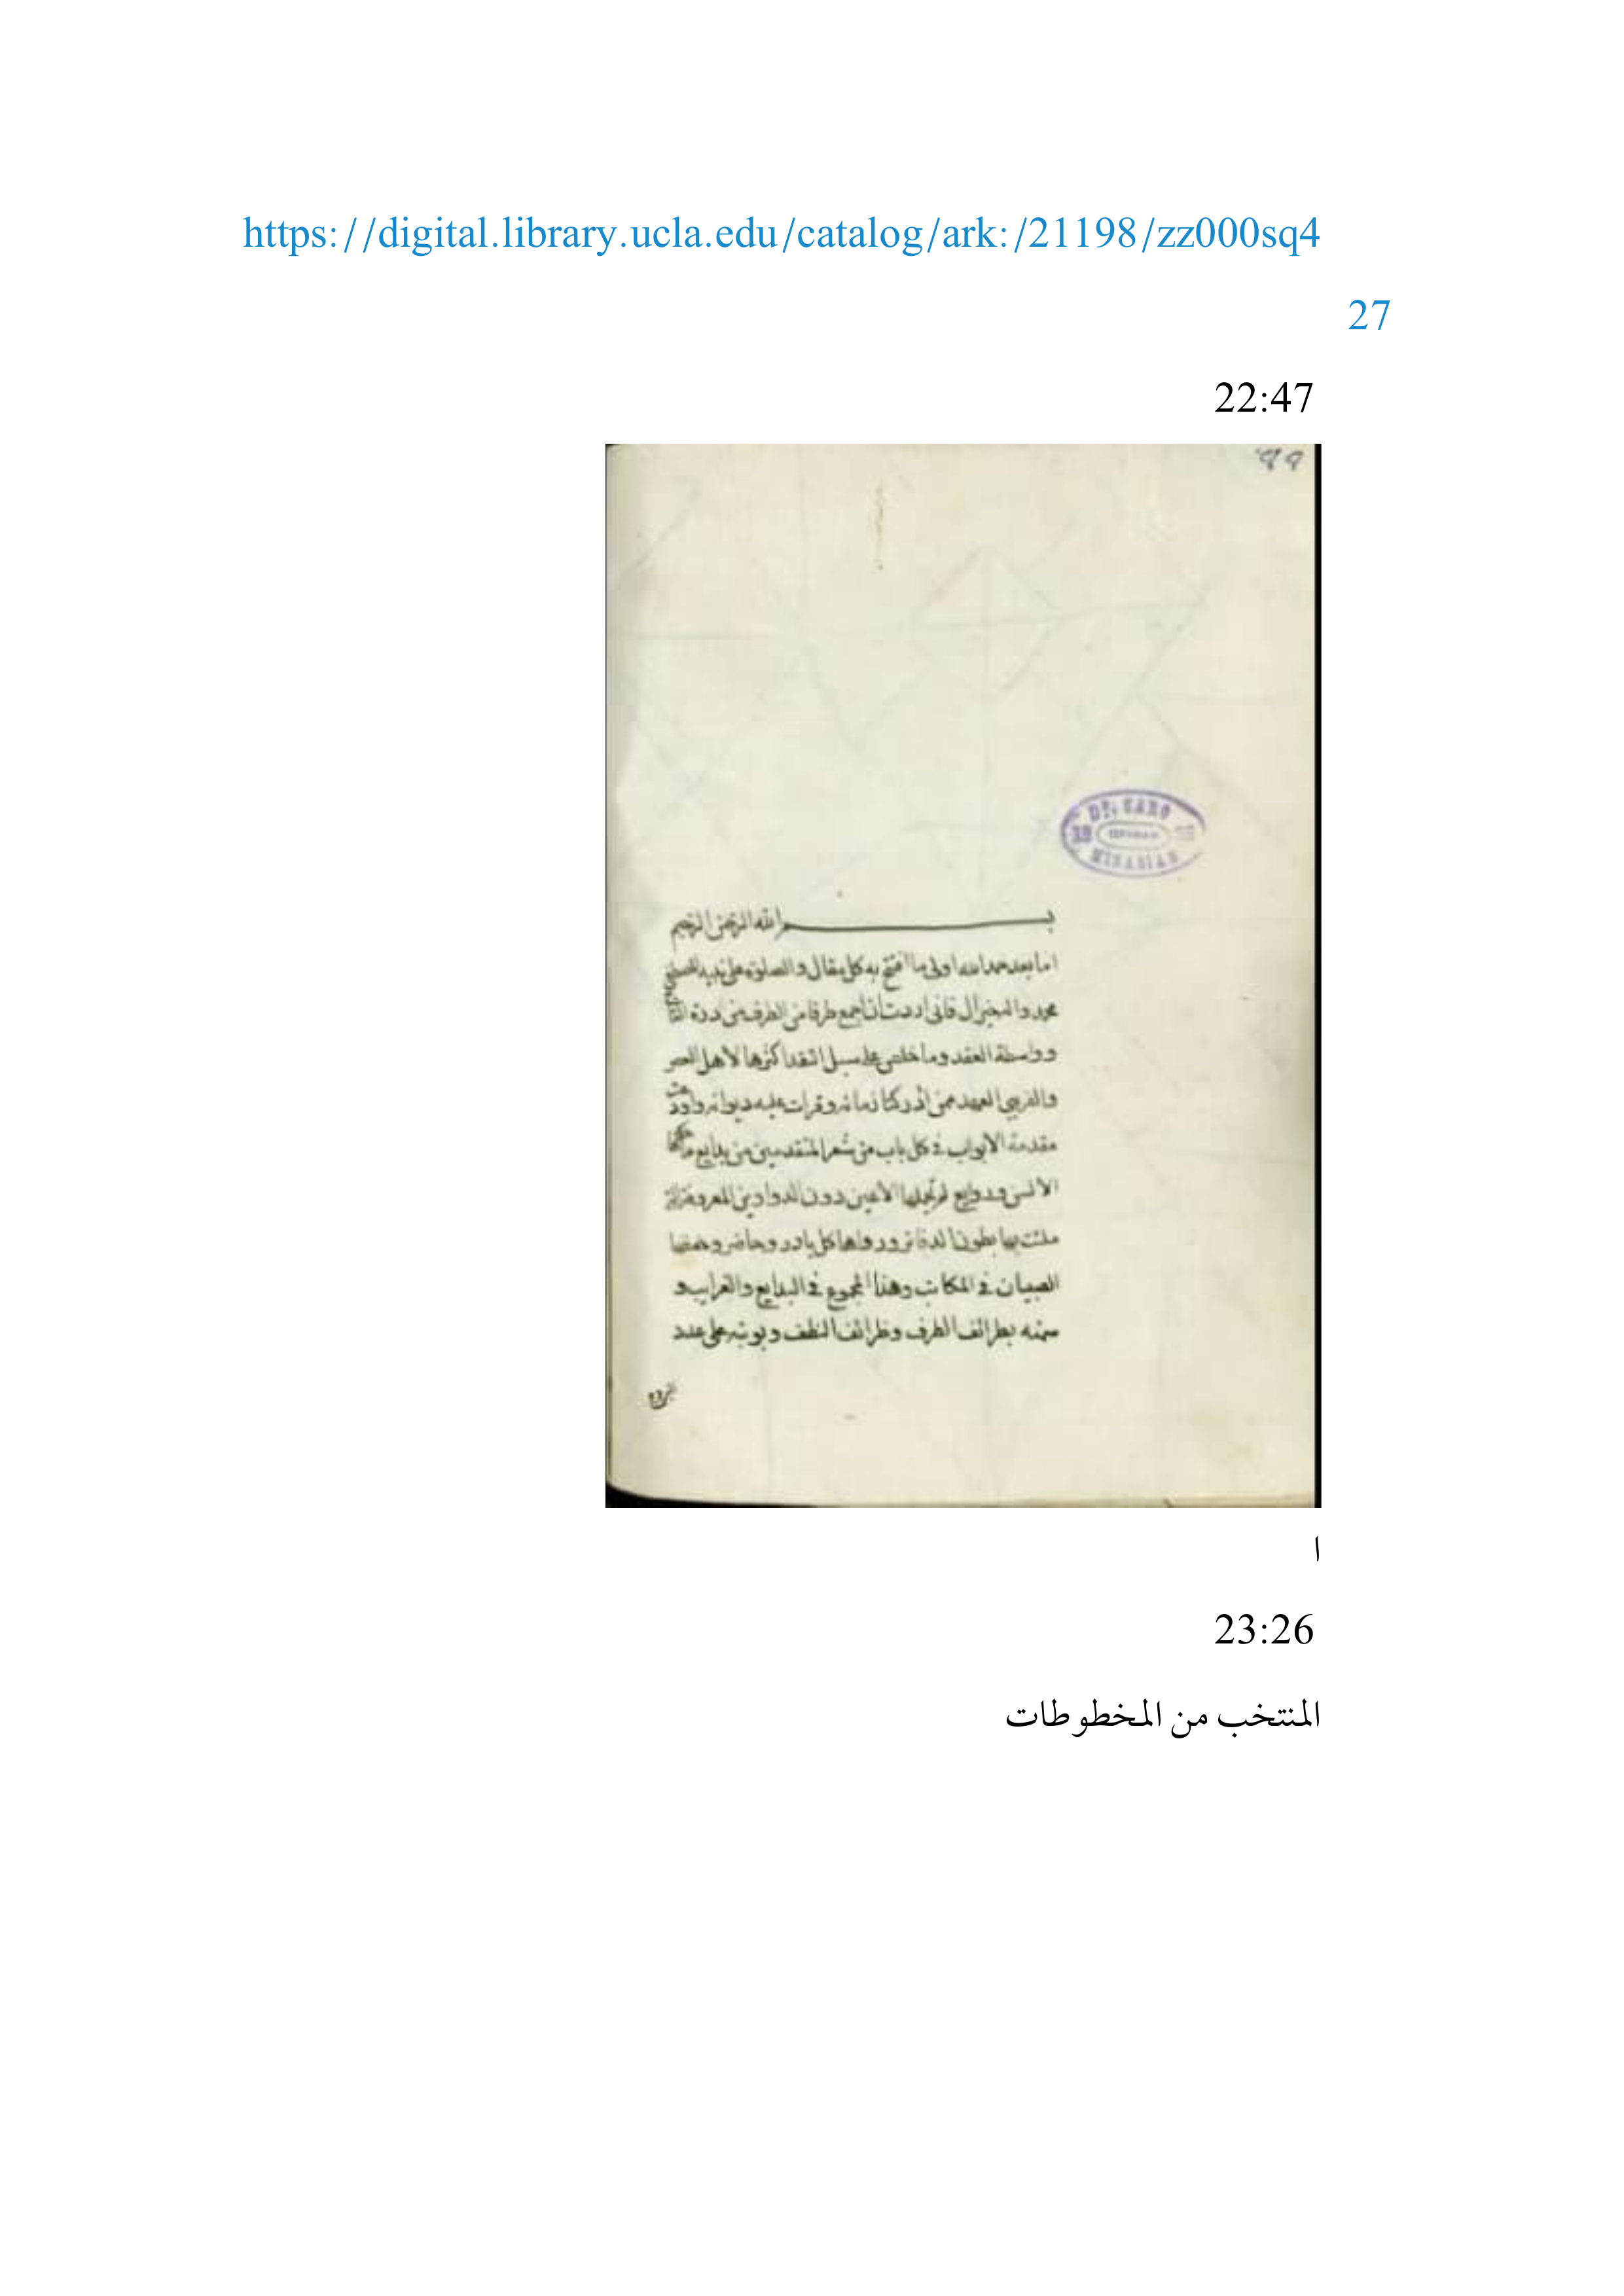 https://digital.library.ucla.edu/catalog/ark:/21198/zz000sq4
27
22:47
99
DR. CARO
MINASIAN
بسم الله الرحمن الرحيم
اما بعد حمد الله اولى ما افتتح به كل مقال والصلوة على نبيه
محمد واله خير ال فانى اردت ان اجمع طرفا من الطرف هى درة
وواسطة العقد وما خلص على سبل النقد اكثرها لاهل العصر
والقريبى العهد ممن ادركنا زمانه وقرات عليه ديوانه واوردت
مقدمة الابواب فى كل باب من شعر المتقدمين من بدايع
الالسن وروايع لم تجلها الاعين دون الدواوين المعروفة
ملئت بها بطون الدفاتر ورواها كل باد وحاضر وحفظها
الصبيان فى المكاتب وهذا المجموع فى البدايع والغرايب و
سمته بطرائف الطرف وظرائف النظف وبوبته على عدد
ا
23:26
المنتخب من المخطوطات